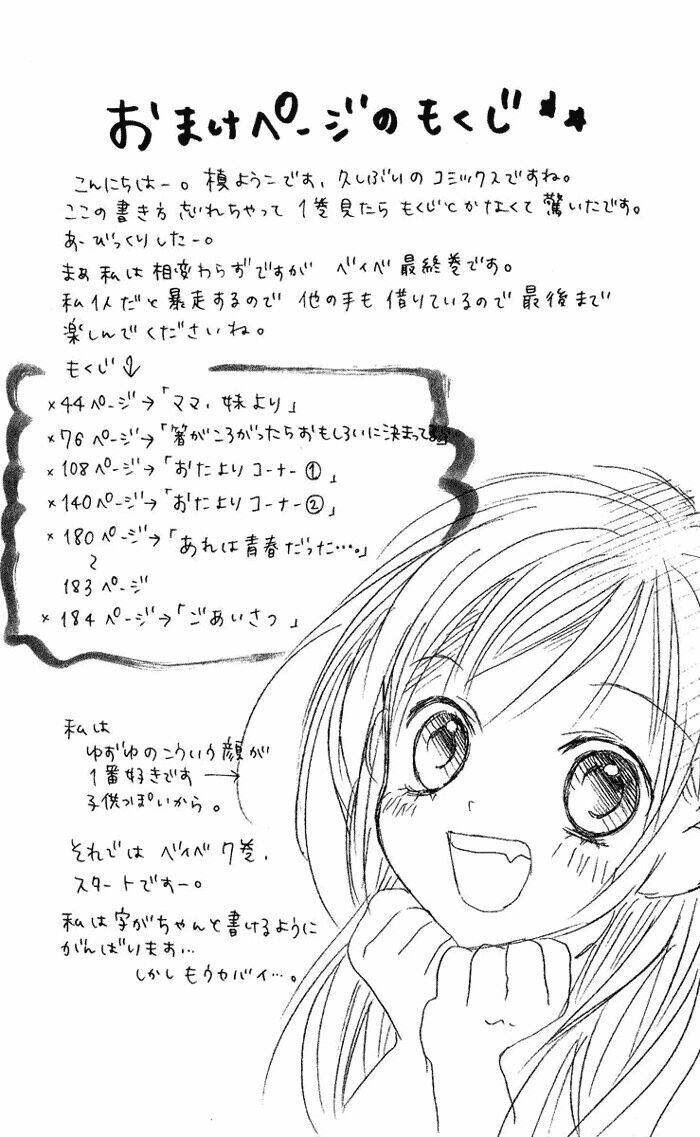 おまけページのもくじ★★
こんにちはー。槙ようこです、久しぶりのコミックスですね。
ここの書き方忘れちゃって1巻見たらもくじとかなくて驚いたです。
あーびっくりしたー。
まぁ私は相変わらずですが ベイベ最終巻です。
私1人だと暴走するので 他の手も借りているので最後まで
楽しんでくださいね。
もくじ↓
×44ページ→「ママ、妹より」
×76ページ→「箸がころがったらおもしろいに決まってる」
×108ページ→「おたよりコーナー①」
×140ページ→「おたよりコーナー②」
×180ページ→「あれは青春だった…。」
〜
183ページ
×184ページ→「ごあいさつ」
私は
ゆずゆのこういう顔が
1番好きです→
子供っぽいから。
それではベイベ7巻、
スタートですー。
私は字がちゃんと書けるように
がんばります…
しかしもうヤバイ…。